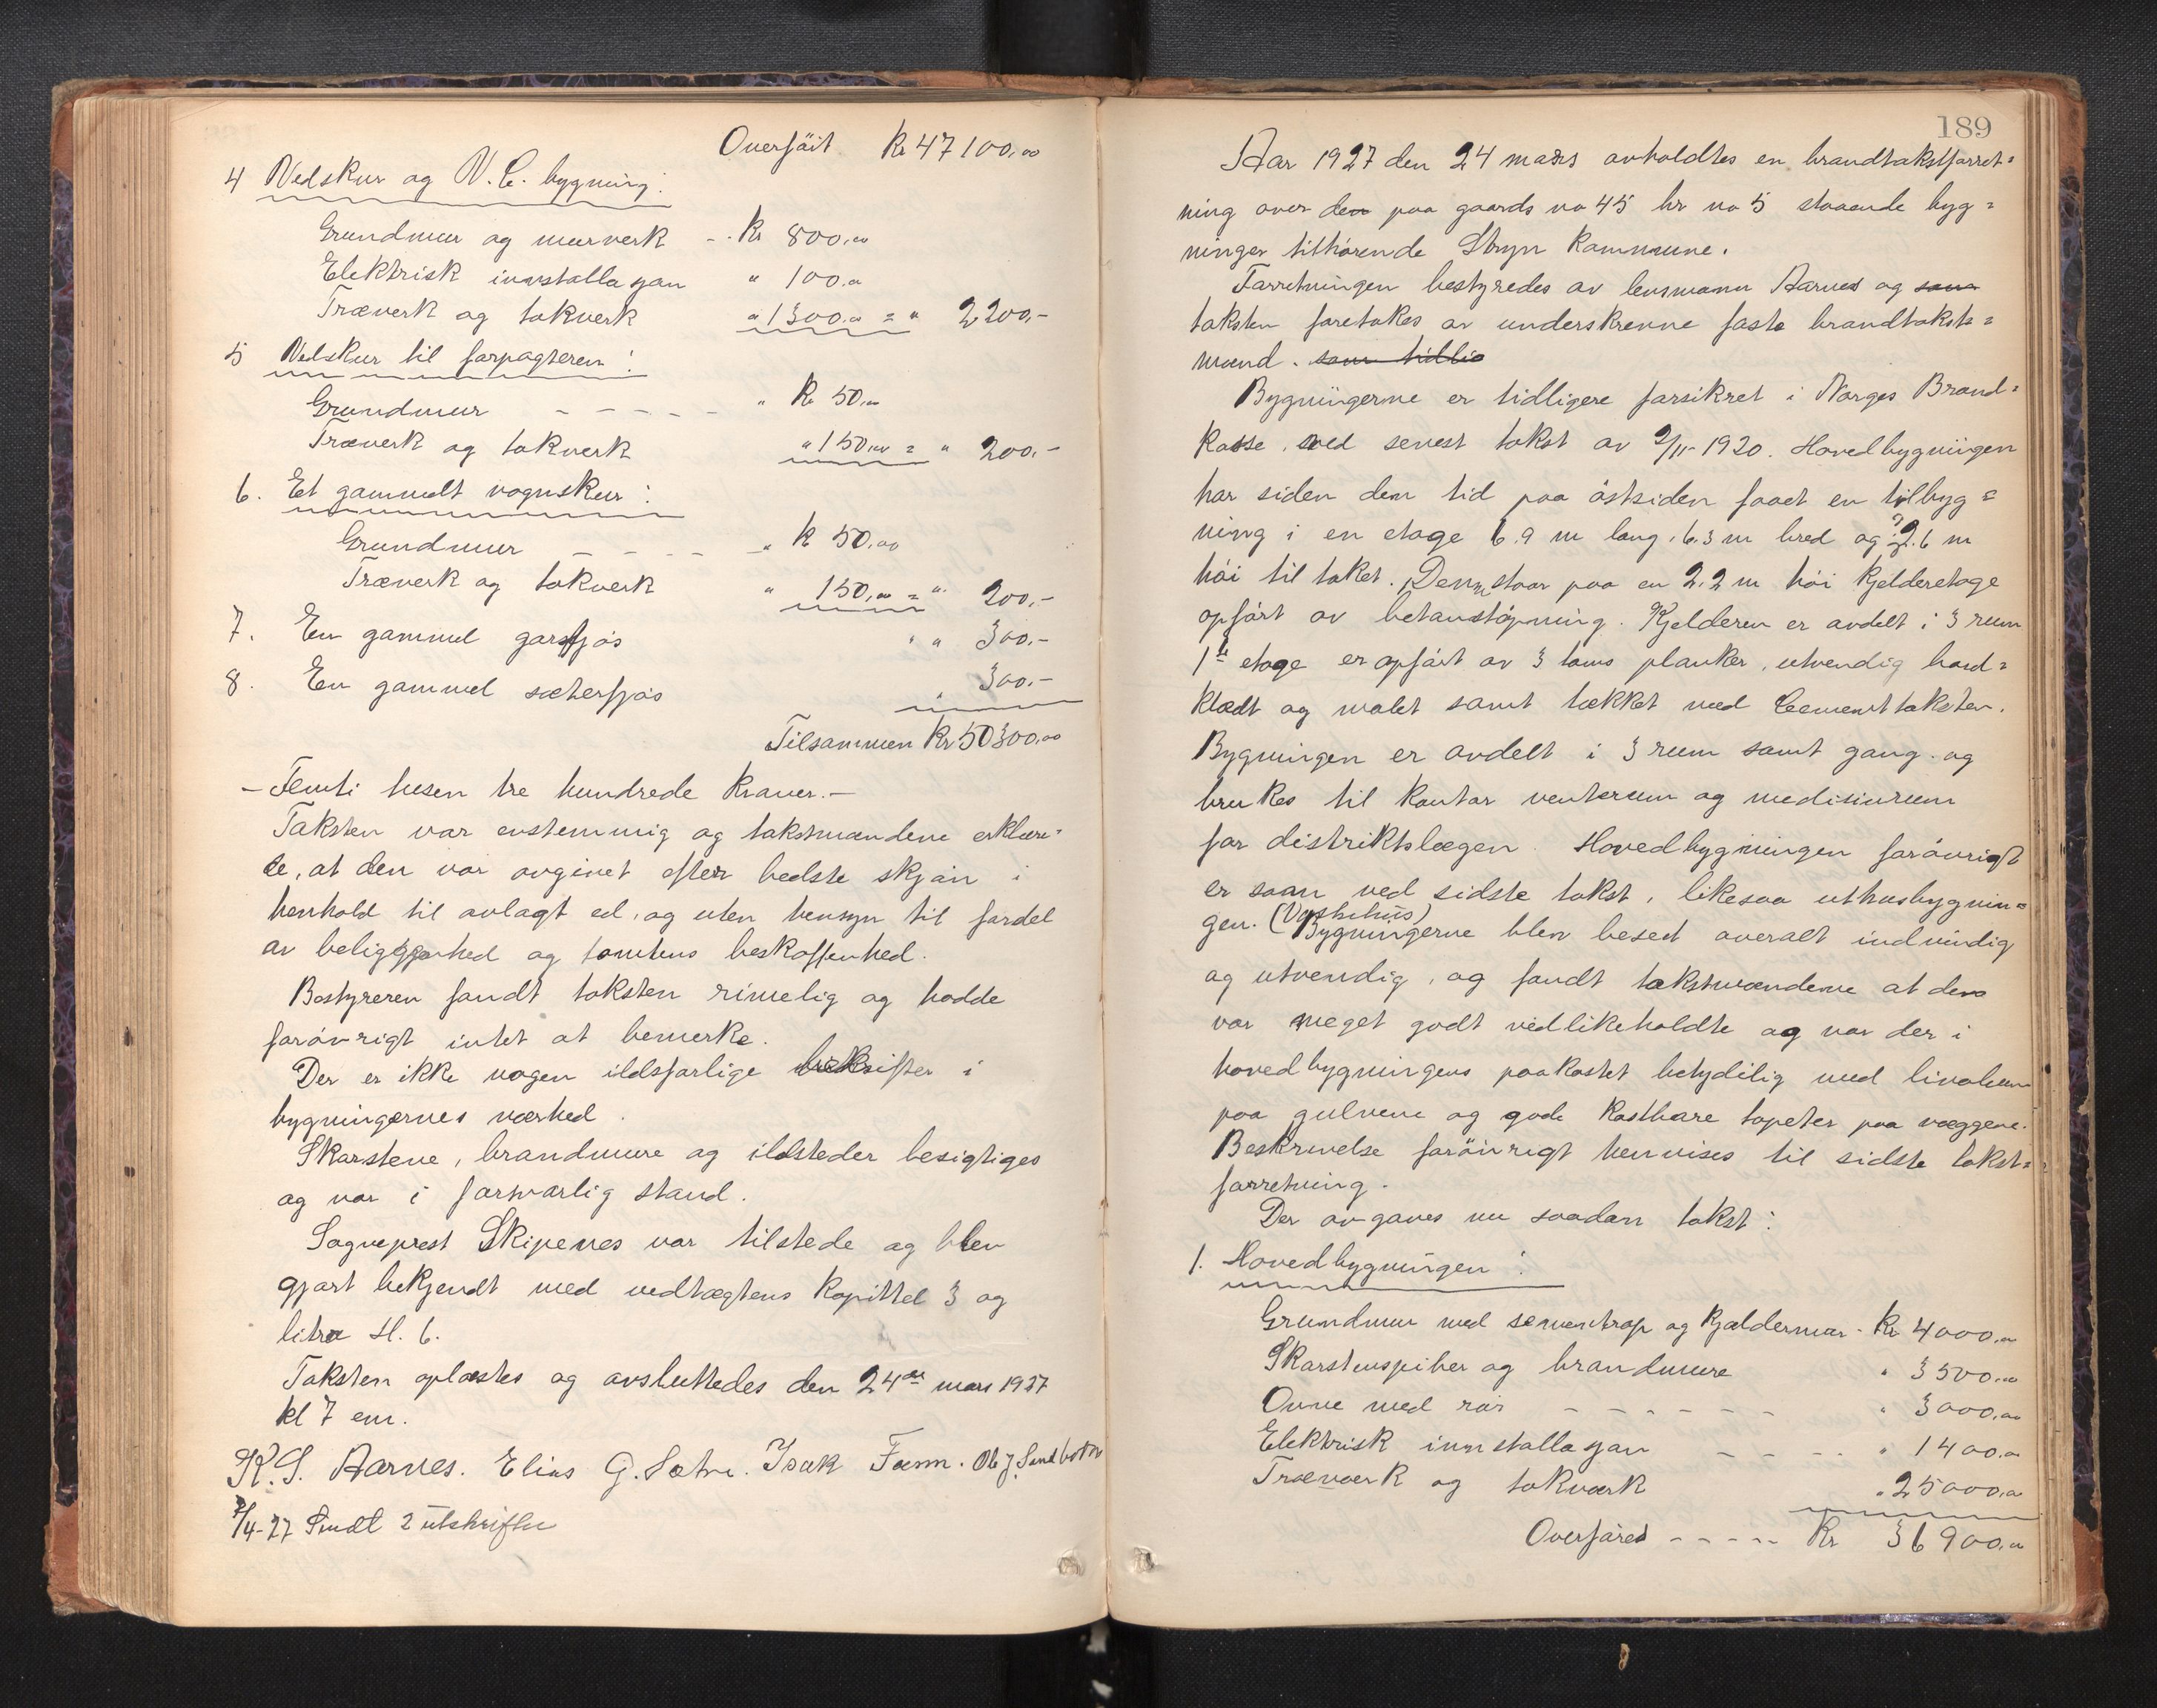 Overført Kr 47100,00
4 Vedskur og V.C. bygning:
Grundmur og murverk - - Kr 800,00
Elektrisk innstallasjon " 100,00
Træverk og takverk " 1300,00 = " 2200,-
5 Vedskur til forpagteren:
Grundmur - - - - - " Kr 50,00
Træverk og takverk " 150,00 = " 200,-
6. Et gammelt vognskur:
Grundmur - - - - - " k 50,00
Træverk og takverk " 150,00 = " 200,-
7. En gammel garsfjøs " " 300,-
8. En gammel sæterfjøs " 300,-
Tilsammen Kr 50300,00
- Femti tusen tre hundrede kroner. -
Taksten var enstemmig og takstmændene erklære=
de, at den var avgivet efter bedste skjøn i
henhold til avlagt ed, og uten hensyn til fordel
av beliggenhed og tomtens beskaffenhed.
Bestyreren fandt taksten rimelig og hadde
forøvrigt intet at bemerke.
Der er ikke nogen ildsfarlige bedrifter i
bygningernes nærhed.
Skorstene, brandmure og ildsteder besigtiges
og var i forsvarlig stand.
Sogneprest Skipenes var tilstede og blev
gjort bekjendt med vedtægtens kapittel 3 og
litra H. 6.
Taksten oplæstes og avsluttedes den 24de mars 1927
kl 7 em.
K. S. Aarnes. Elias G. Sætre. Isak Fænn. Ole J. Sandbotn
/4-27 Sendt 2 utskrifter
189
Aar 1927 den 24 mars avholdtes en brandtakstforret=
ning over den paa gaards no 45 br no 5 staaende byg=
ninger tilhørende Stryn kommune.
Forretningen bestyredes av lensmann Aarnes og som
taksten foretokes av underskrevne faste brandtakst=
mænd. som tidlig
Bygningerne er tidligere forsikret i Norges Brand=
kasse, ved senest takst av 9/11-1920. Hovedbygningen
har siden den tid paa østsiden faaet en tilbyg=
ning i en etage 6.9 m lang, 6.3 m bred og 2.6 m
høi til taket. Denn staar paa en 2.2 m høi kjelderetage
opført av betonstøpning. Kjelderen er avdelt i 3 rum
1ste etage er opført av 3 toms planker, utvendig bord=
klædt og malet samt tækket med cementtaksten.
Bygningen er avdelt i 3 rum samt gang. og
brukes til kontor venterum og medisinrum
for distriktslægen. Hovedbygningen forøvrigt
er som ved sidste takst, likesaa uthusbygnin=
gen. (Vaskehus) Bygningerne blev beset overalt indvendig
og utvendig, og fandt takstmændene at den
var meget godt vedlikeholdte og var der i
hovedbygningens paakostet betydelig med linoleum
paa gulvene og gode kostbare tapeter paa væggene.
Beskrivelse forøvrigt henvises til sidste takst=
forretning.
Der avgaves nu saadan takst:
1. Hovedbygningen:
Grundmur med sementtrap og kjældermur - Kr 4000,00
Skorstenspiber og brandmure " 3500,00
Ovne med rør - - - - - - " 3000,00
Elektrisk innstallasjon - - - - " 1400,00
Træværk og takværk " 25000,00
Overføres - - - - - Kr 36900,00